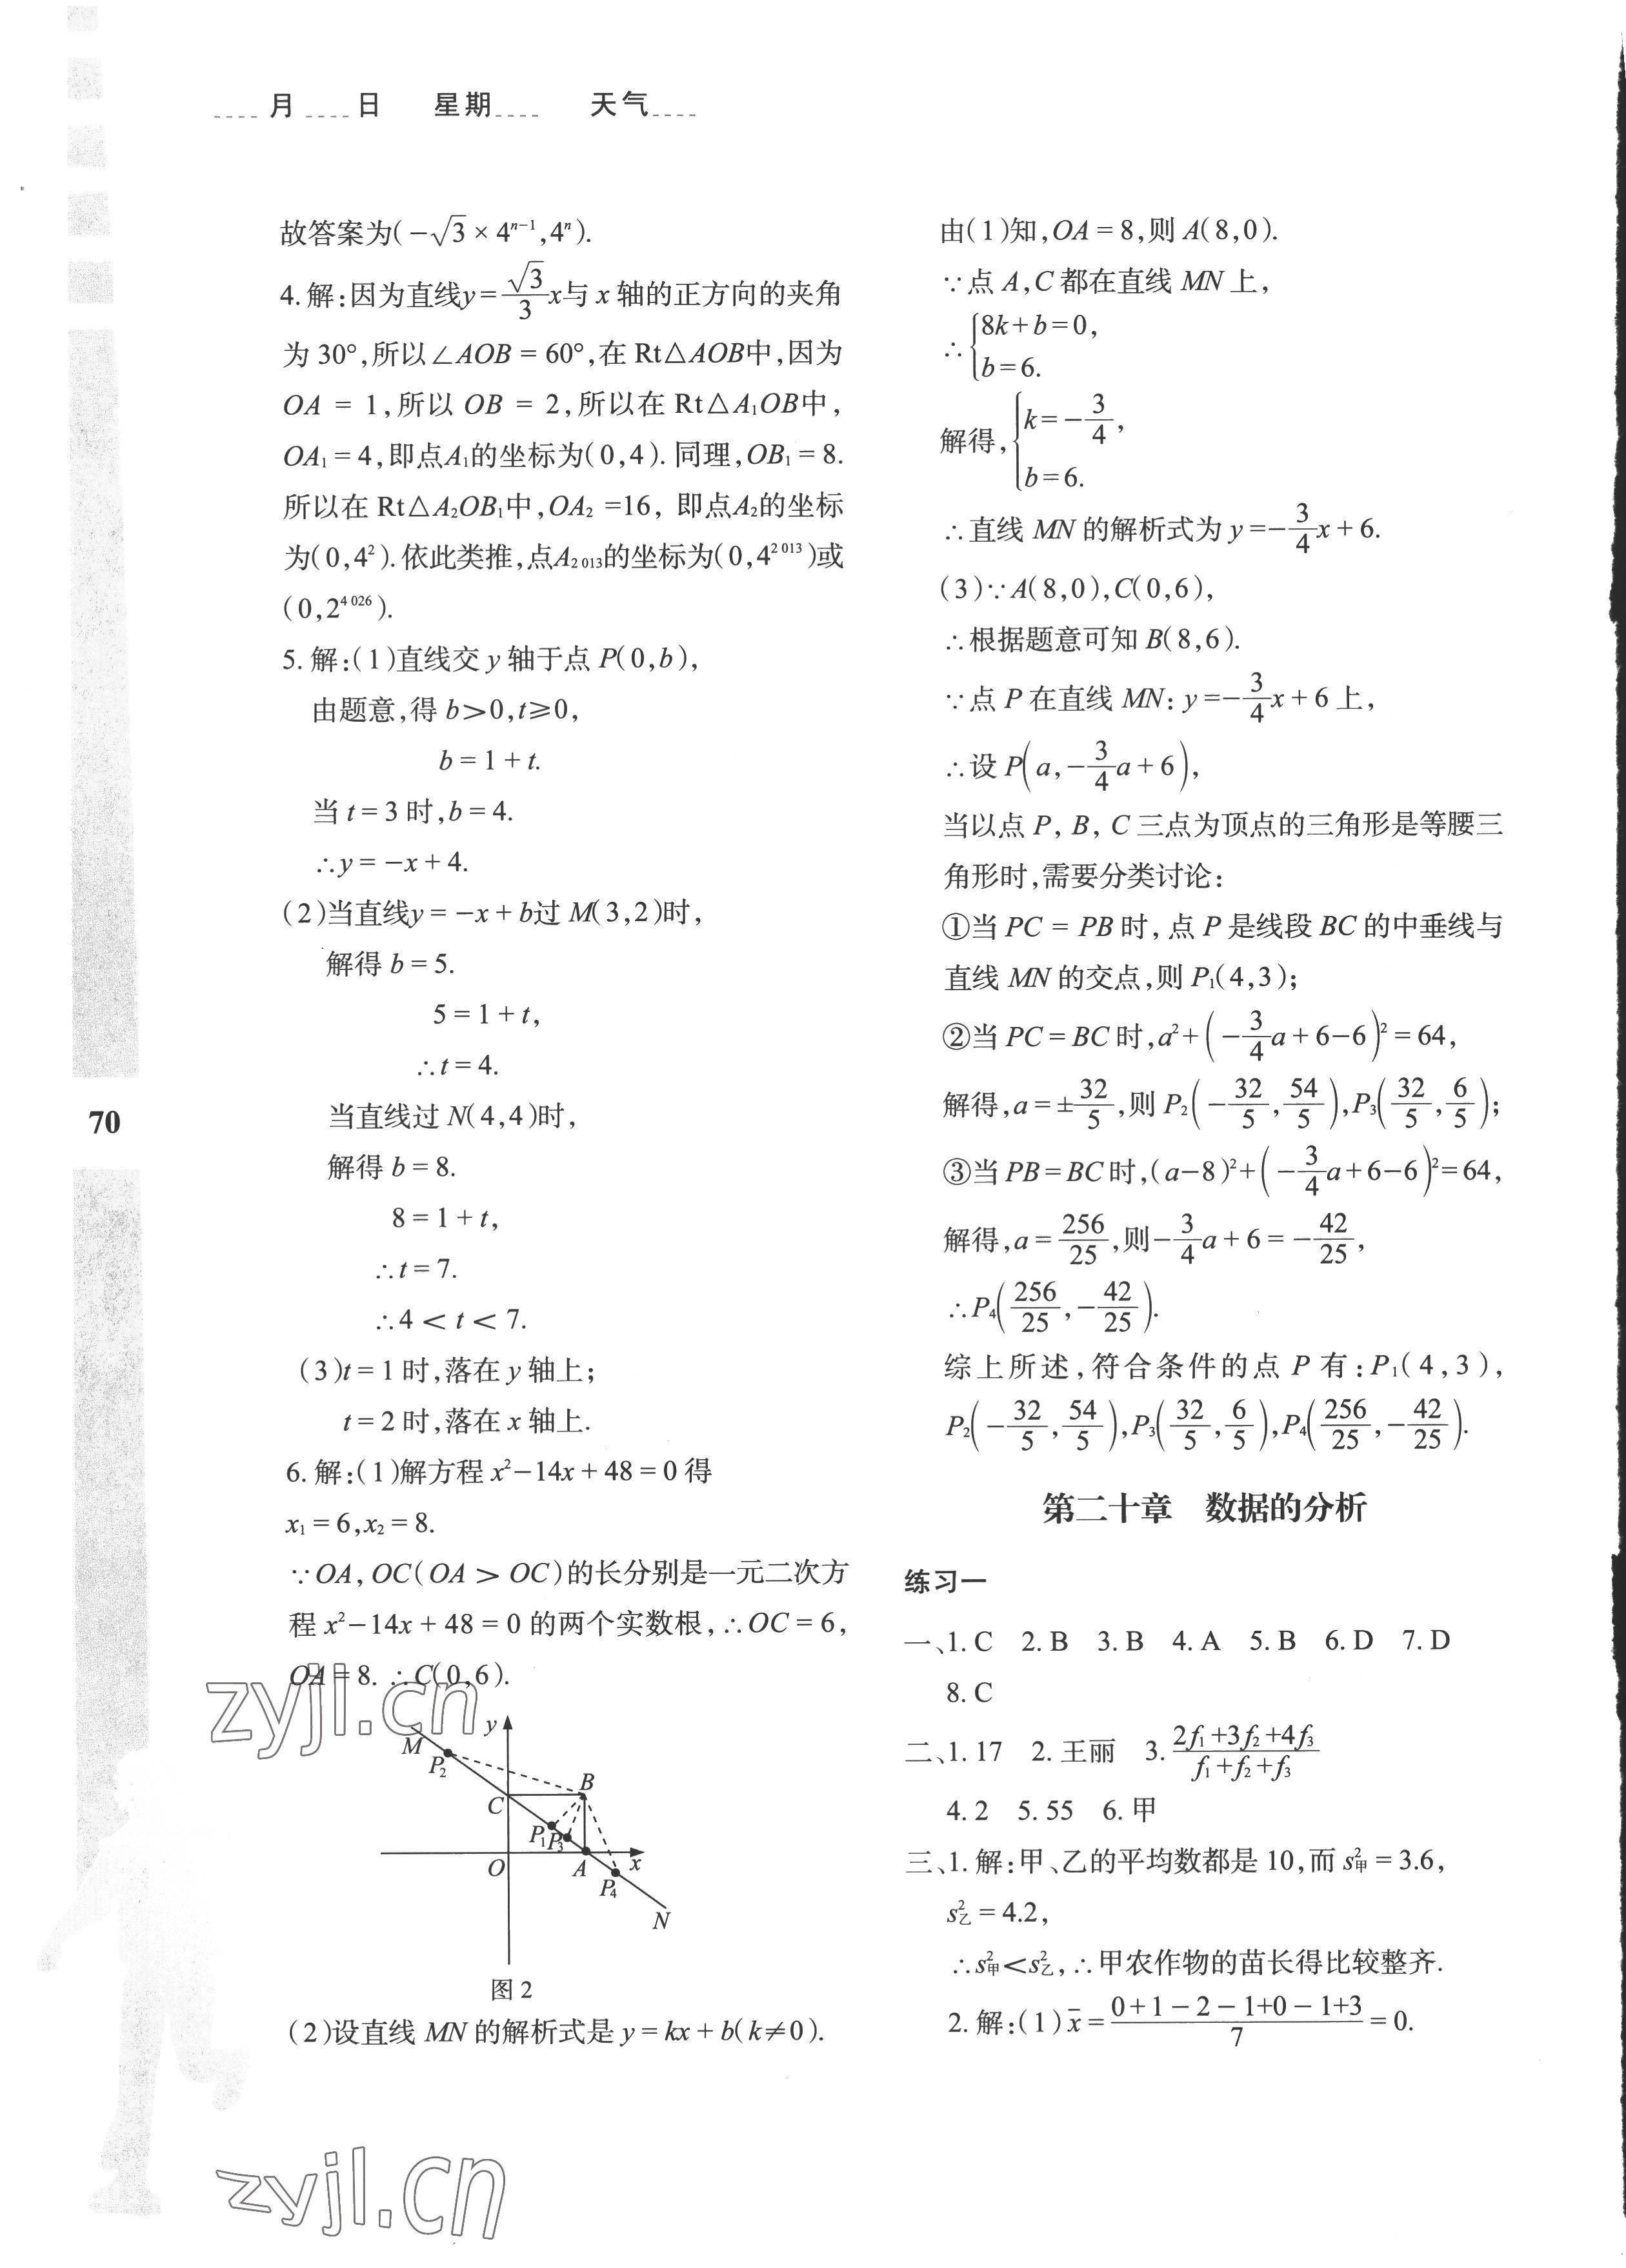 月 日 星期 天气
故答案为(-√3 × 4ⁿ⁻¹,4ⁿ).
4. 解:因为直线y=√3/3 x与 x 轴的正方向的夹角
为 30°,所以∠AOB = 60°,在 Rt△AOB中,因为
OA = 1,所以 OB = 2,所以在 Rt△A₁OB中,
OA₁ = 4,即点A₁的坐标为(0,4). 同理,OB₁ = 8.
所以在 Rt△A₂OB₁中,OA₂ =16, 即点A₂的坐标
为(0,4²).依此类推,点A₂₀₁₃的坐标为(0,4²⁰¹³)或
(0,2⁴⁰²⁶).
5. 解:(1)直线交 y 轴于点 P(0,b),
由题意,得 b>0,t≥0,
b = 1 + t.
当 t = 3 时,b = 4.
∴y = -x + 4.
(2)当直线y = -x + b过 M(3,2)时,
解得 b = 5.
5 = 1 + t,
∴t = 4.
当直线过 N(4,4)时,
解得 b = 8.
8 = 1 + t,
∴t = 7.
∴4 < t < 7.
(3)t = 1 时,落在 y 轴上;
t = 2 时,落在 x 轴上.
6. 解:(1)解方程 x²-14x + 48 = 0 得
x₁ = 6,x₂ = 8.
∵OA, OC(OA > OC)的长分别是一元二次方
程 x²-14x + 48 = 0 的两个实数根,∴OC = 6,
OA = 8. ∴C(0,6).
zyjl.cn
y
M
P₂
B
C
P₁P₃
O
A
x
P₄
N
图 2
(2)设直线 MN 的解析式是 y = kx + b(k≠0).
70
由(1)知,OA = 8,则 A(8,0).
∵点 A,C 都在直线 MN 上,
∴{8k+b=0,
b=6.
解得,{k=-3/4,
b=6.
∴直线 MN 的解析式为 y=-3/4x + 6.
(3)∵A(8,0),C(0,6),
∴根据题意可知 B(8,6).
∵点 P 在直线 MN: y=-3/4x + 6 上,
∴设 P(a,-3/4a + 6),
当以点 P, B, C 三点为顶点的三角形是等腰三
角形时,需要分类讨论:
①当 PC = PB 时, 点 P 是线段 BC 的中垂线与
直线 MN 的交点,则 P₁(4,3);
②当 PC = BC 时,a²+(-3/4a + 6-6)² = 64,
解得,a = ±32/5,则 P₂(-32/5,54/5),P₃(32/5,6/5);
③当 PB = BC 时,(a-8)²+(-3/4a+6-6)²=64,
解得,a = 256/25,则-3/4a + 6 = -42/25,
∴P₄(256/25,-42/25).
综上所述,符合条件的点 P 有:P₁(4,3),
P₂(-32/5,54/5),P₃(32/5,6/5),P₄(256/25,-42/25).
第二十章 数据的分析
练习一
一、1. C 2. B 3. B 4. A 5. B 6. D 7. D
8. C
二、1. 17 2. 王丽 3. (2f₁+3f₂+4f₃)/(f₁+f₂+f₃)
4. 2 5. 55 6. 甲
三、1. 解:甲、乙的平均数都是 10,而 s²甲 = 3.6,
s²乙 = 4.2,
∴s²甲<s²乙,∴甲农作物的苗长得比较整齐.
2. 解:(1) x̄ = (0+1-2-1+0-1+3)/7 = 0.
zyjl.cn